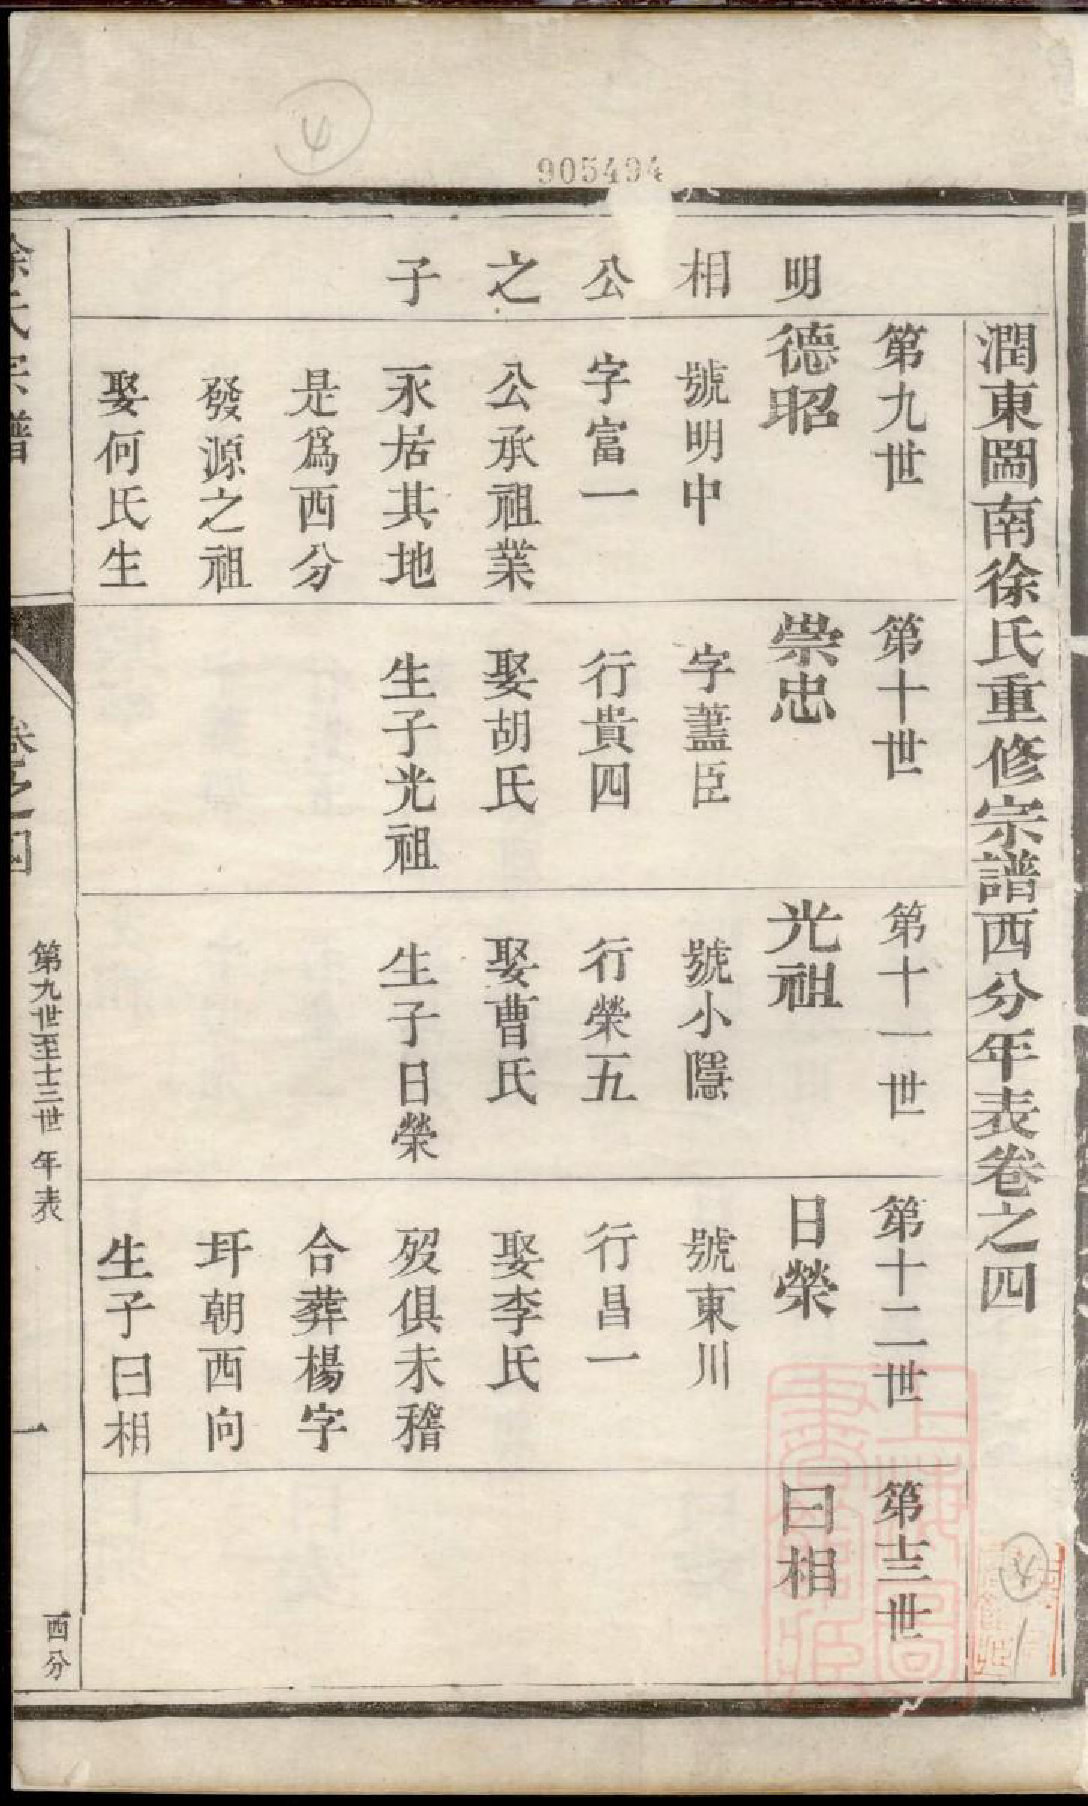 905494
潤東圌南徐氏重修宗譜西分年表卷之四
明相公之子
第九世
德昭
號明中
字富一
公承祖業
永居其地
是爲西分
發源之祖
娶何氏生
第十世
崇忠
字藎臣
行貴四
娶胡氏
生子光祖
第十一世
光祖
號小隱
行榮五
娶曹氏
生子日榮
第十二世
日榮
號東川
行昌一
娶李氏
歿俱未稽
合葬楊字
圩朝西向
生子曰相
第十三世
曰相
徐氏宗譜
卷之四
第九世至十三世 年表
一
西分
上海圖書館藏